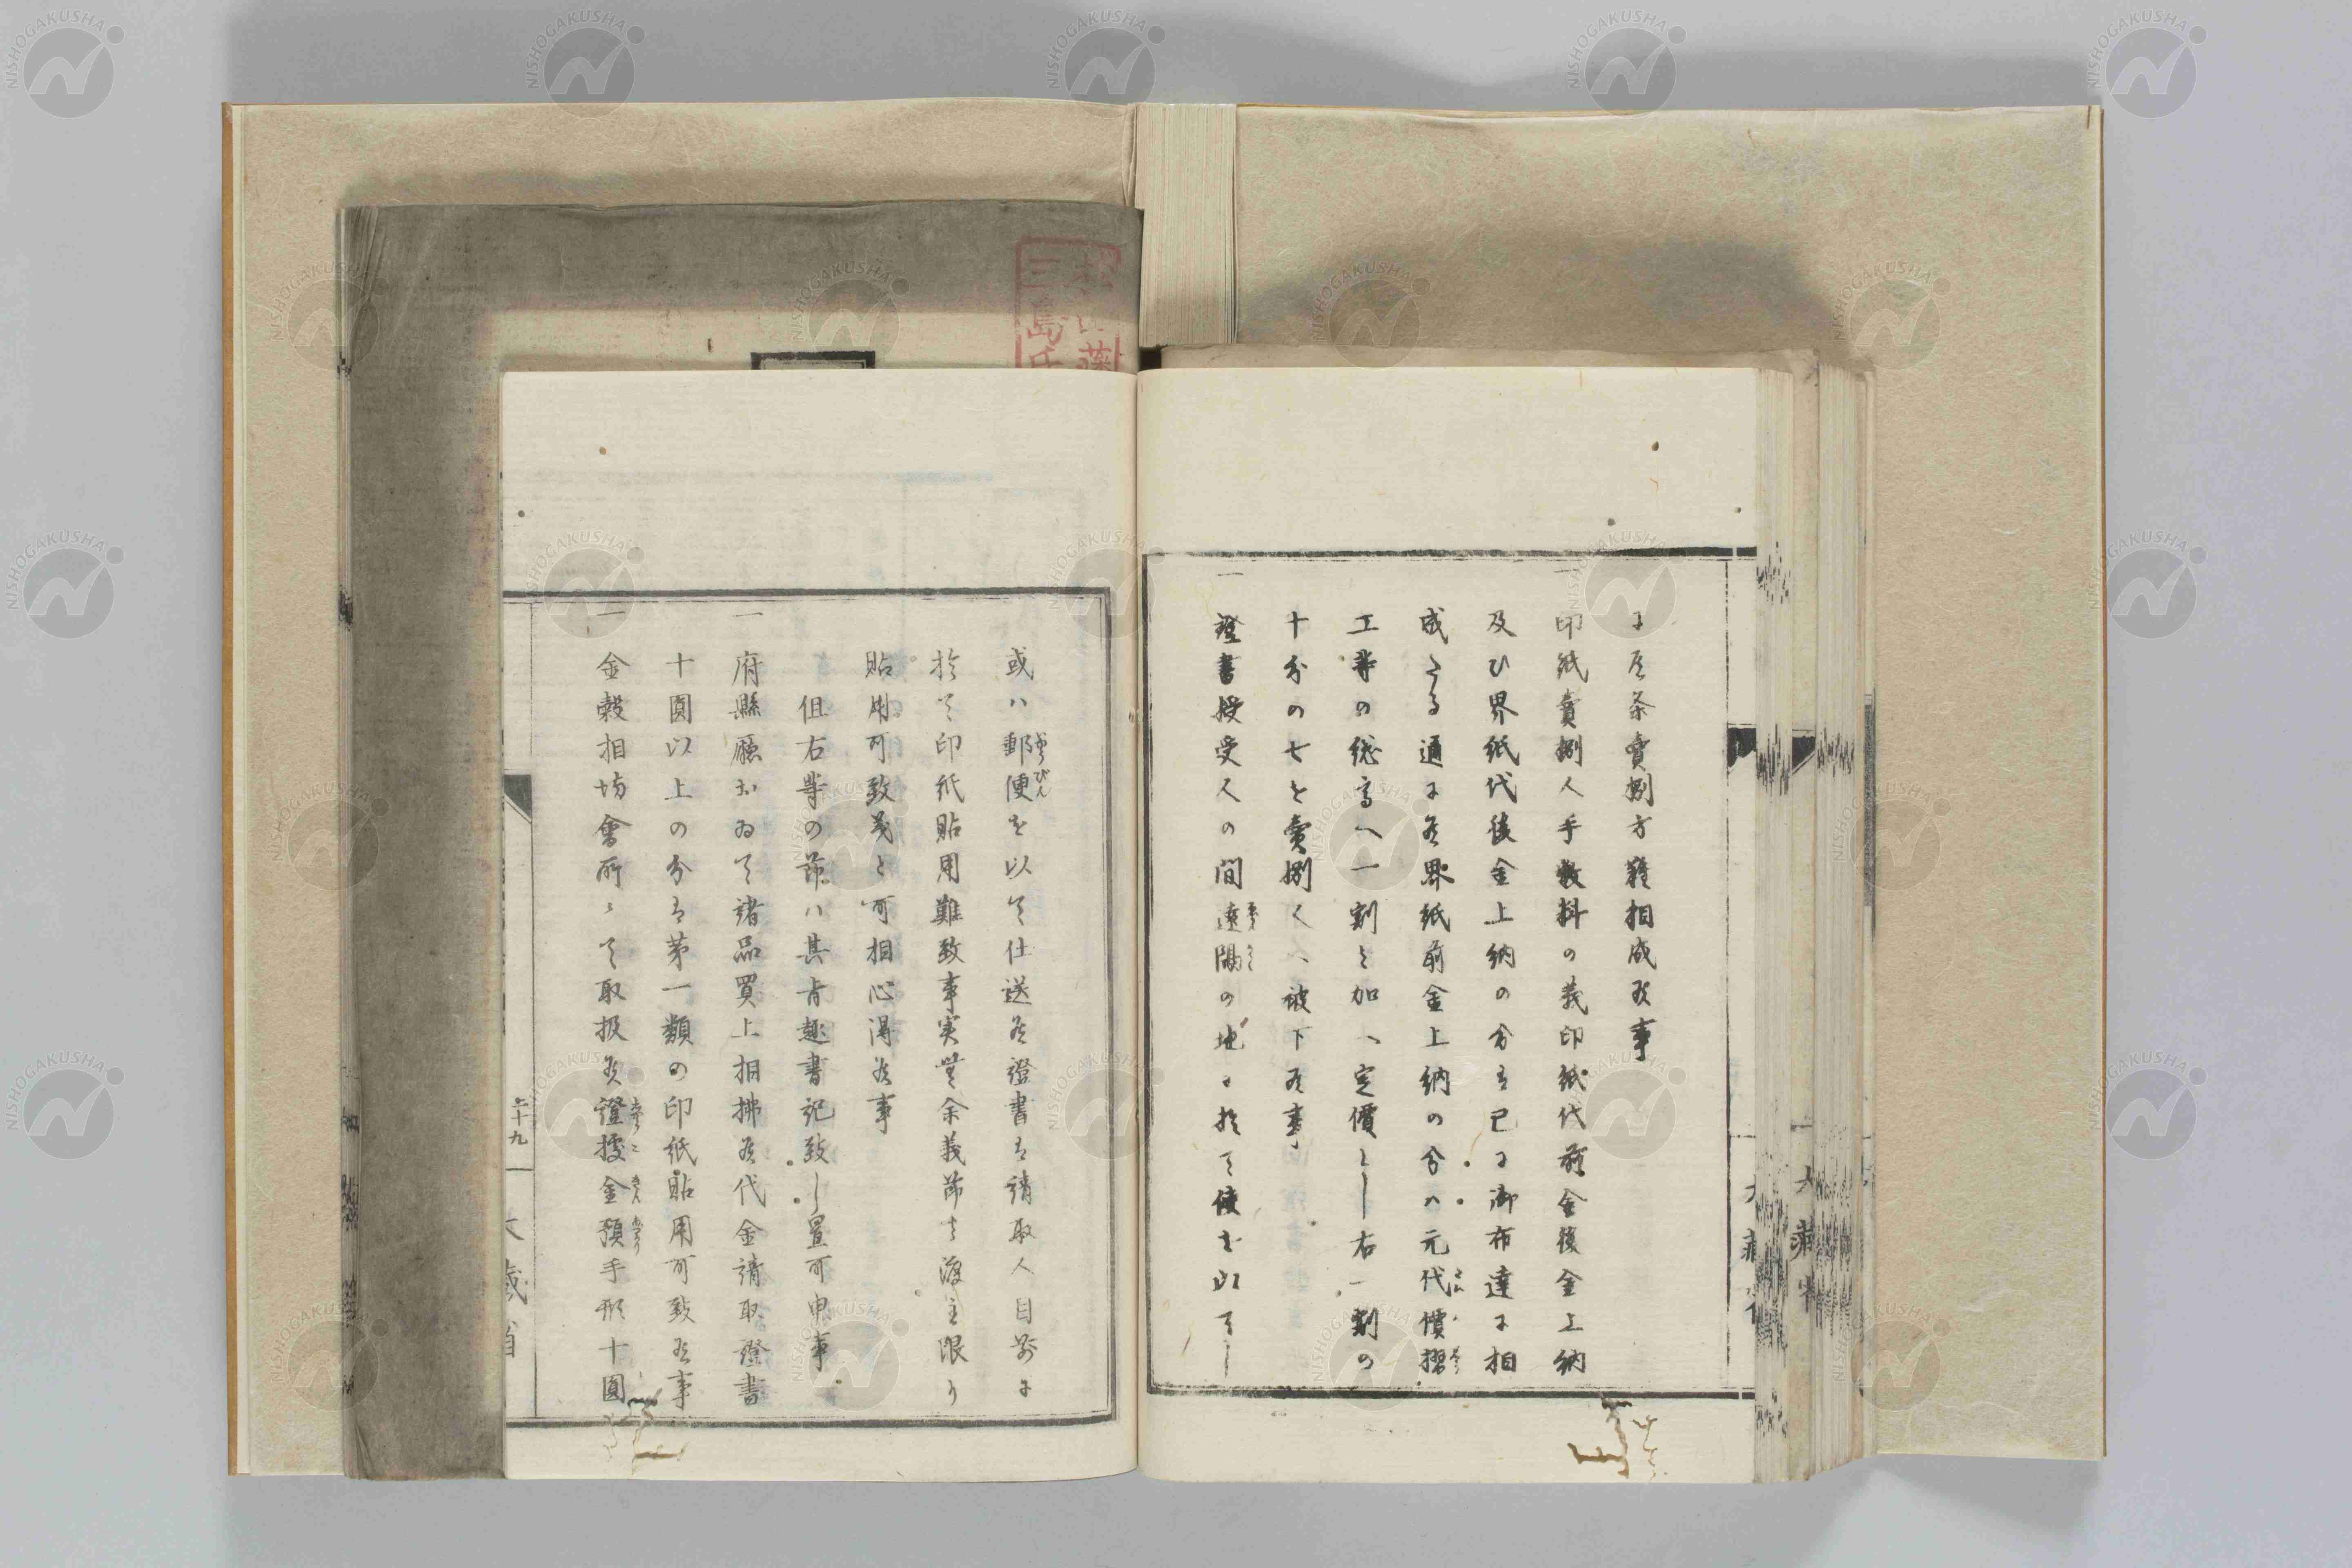 に及条賣捌方難相成候事
一印紙賣捌人手数料の義印紙代前金後金上納
及ひ界紙代後金上納の分は已に御布達に相
成たる通に候界紙前金上納の分ハ元代價摺
工等の総高へ一割を加へ定價とし右一割の
十分の七を賣捌人へ被下候事
一證書授受人の間遠隔の地に於て使を以てし
或ハ郵便を以て仕送候證書は請取人目前に
於て印紙貼用難致事実無余義節は渡主限り
貼用可致義と可相心得候事
但右等の節ハ其旨趣書記致し置可申事
一府縣廳おゐて諸品買上相拂候代金請取證書
十圓以上の分は第一類の印紙貼用可致候事
一金穀相場會所にて取扱候證據金預手形十圓
二十九
大蔵省
NISHOGAKUSHA